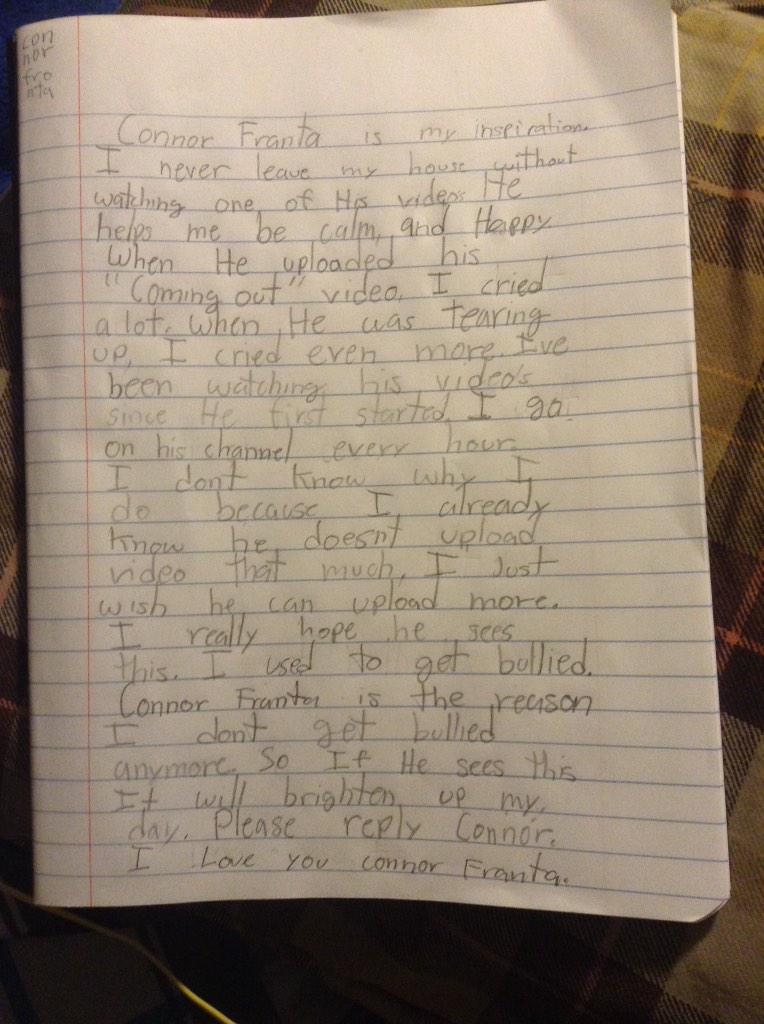 con
nor
fra
nta
Connor Franta is my inspiration.
I never leave my house without
watching one of His videos. He
helps me be calm, and Happy.
When He uploaded his
"Coming out" video, I cried
a lot. When He was tearing
up, I cried even more. I've
been watching his video's
since He first started. I go
on his channel every hour.
I dont know why I
do because I already
know he doesnt upload
video that much, I Just
wish he can upload more.
I really hope he sees
this. I used to get bullied.
Connor Franta is the reason
I dont get bullied
anymore. So If He sees this
It will brighten up my
day. Please reply Connor.
I Love you connor Franta.